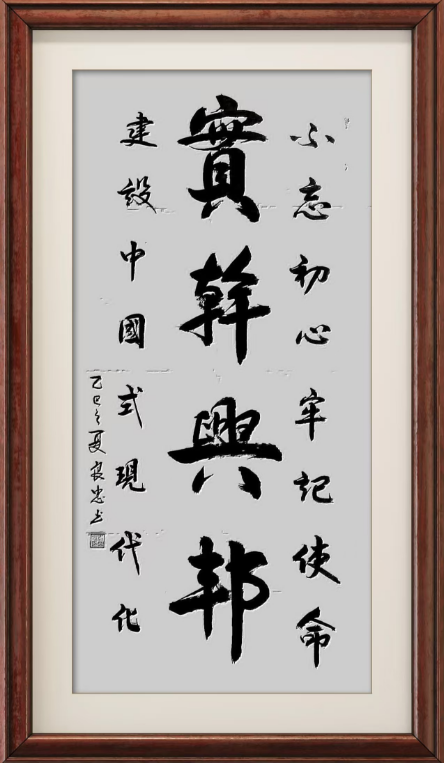 不忘初心牢记使命
實幹興邦
建設中國式現代化
乙巳之夏良忠书